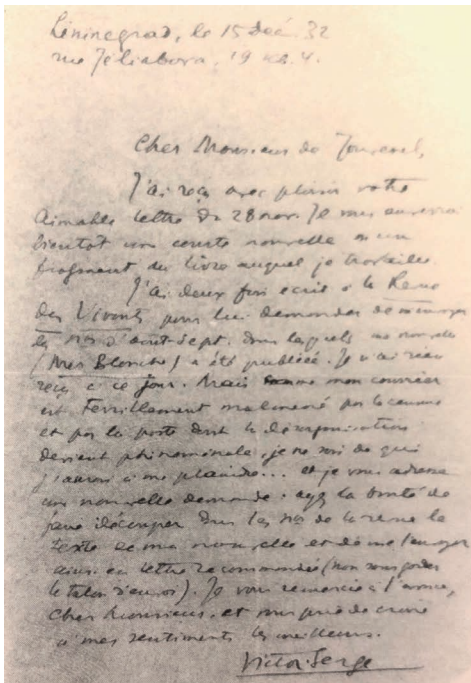 Léninegrad, le 15 déc. 32
rue Jéliabova, 19 4.
Cher Monsieur de
J'ai reçu avec plaisir votre
aimable lettre du 28 nov. Je vous enverrai
bientôt une courte nouvelle ou un
fragment du livre auquel je travaille.
J'ai deux fois écrit à la Revue
des Vivants pour lui demander de m'envoyer
les nos d'août-sept. dans lesquels ma nouvelle
(Mer Blanche) a été publiée. Je n'ai rien
reçu à ce jour. Mais comme mon courrier
est terriblement malmené par la censure
et par la poste dont la désorganisation
devient phénoménale, je ne sais de qui
j'aurais à me plaindre... et je vous adresse
une nouvelle demande : ayez la bonté de
faire découper dans les nos de la revue le
texte de ma nouvelle et de me l'envoyer
ainsi en lettre recommandée (non sans garder
le talon d'envoi). Je vous remercie à l'avance,
cher Monsieur, et vous prie de croire
à mes sentiments les meilleurs.
Victor-Serge